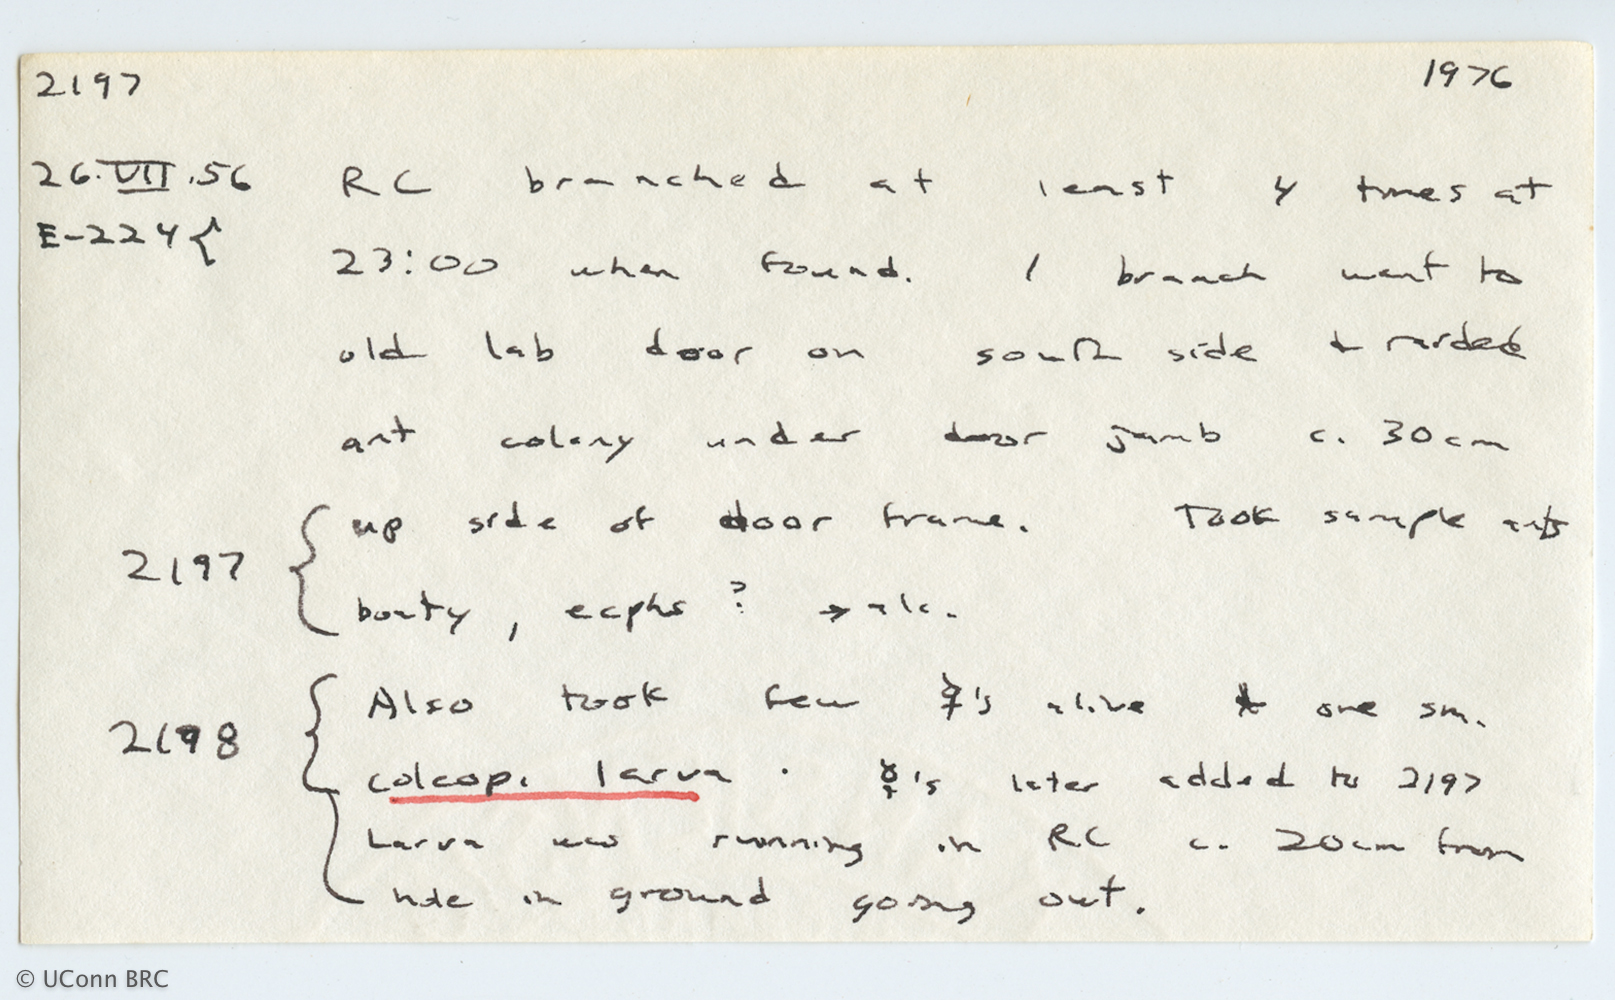 2197 1976
26.VII.56 RC branched at least 4 times at
E-224 { 23:00 when found. 1 branch went to
old lab door on south side & raided
ant colony under door jamb c. 30cm
up side of door frame. Took sample ants
2197 { booty, ecphs ? → alc.
Also took few ☿'s alive & one sm.
2198 { coleop. larva. ☿'s later added to 2197
Larva was running in RC c. 20cm from
hole in ground going out.
© UConn BRC